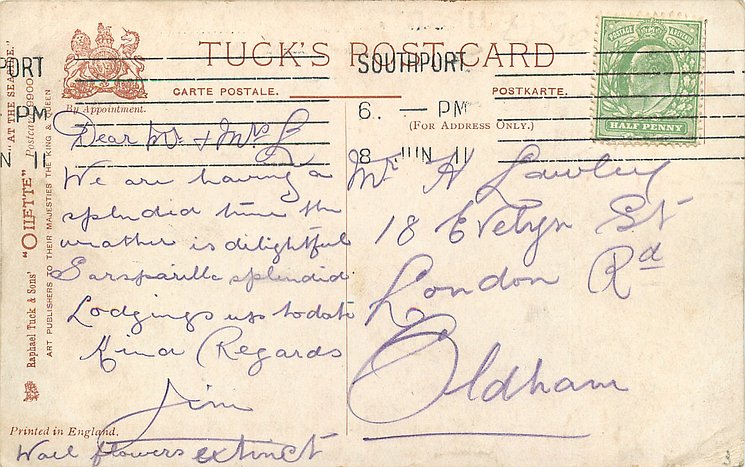 TUCK'S POST CARD
CARTE POSTALE.
POSTKARTE.
By Appointment.
(FOR ADDRESS ONLY.)
PORT
PM
N 11
SOUTHPORT
6. — PM
8 JUN 11
POSTAGE & REVENUE
HALF PENNY
"AT THE SEASIDE."
Raphael Tuck & Sons' "OILETTE" Postcard 9900
ART PUBLISHERS TO THEIR MAJESTIES THE KING & QUEEN
Dear Mr. & Mrs L
We are having a
splendid time the
weather is delightful
Sarsparilla splendid
Lodgings up to date
Kind Regards
Jim
Wall flowers extinct
Mr H Lawley
18 Evelyn St
London Rd
Oldham
Printed in England.